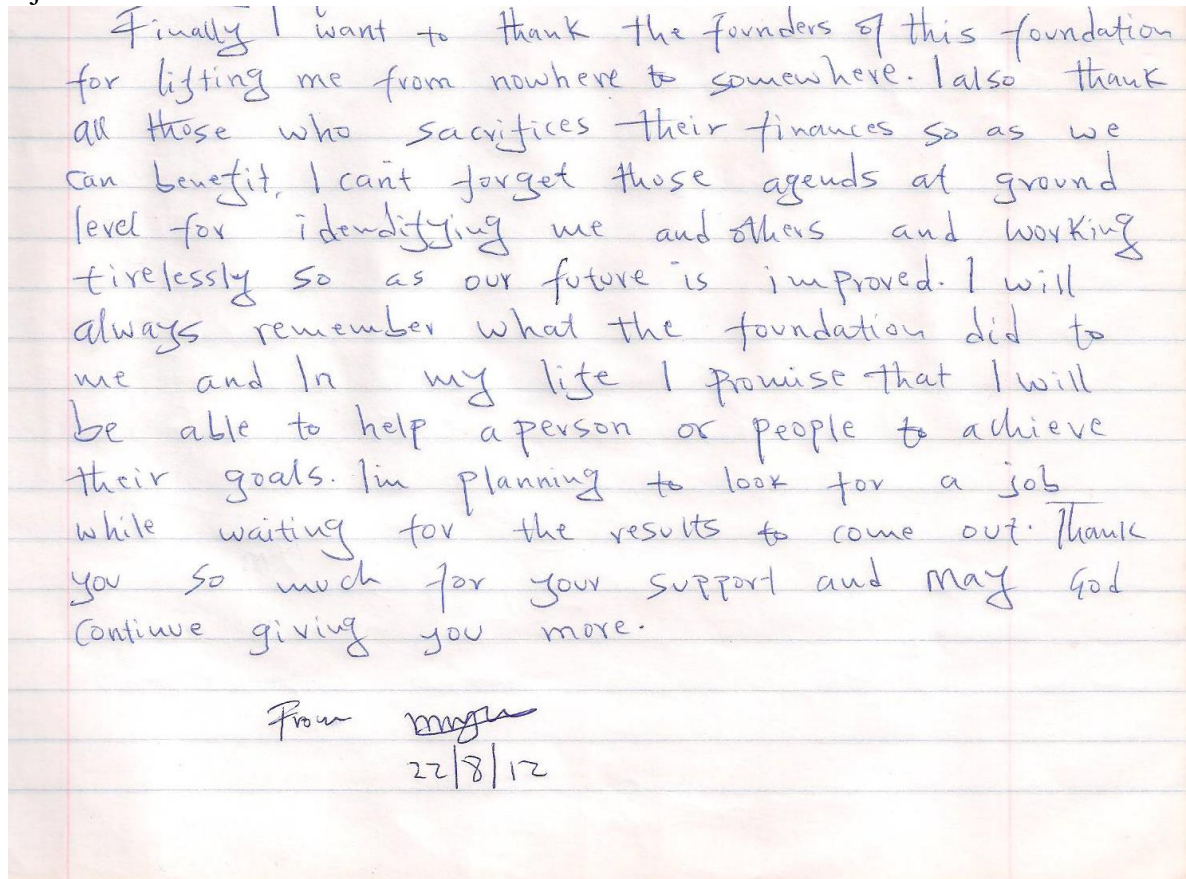 Finally I want to thank the founders of this foundation
for lifting me from nowhere to somewhere. I also thank
all those who sacrifices their finances so as we
can benefit, I can't forget those agends at ground
level for idendifying me and others and working
tirelessly so as our future is improved. I will
always remember what the foundation did to
me and In my life I promise that I will
be able to help a person or people to achieve
their goals. I'm planning to look for a job
while waiting for the results to come out. Thank
you so much for your support and may God
Continue giving you more.
From
22/8/12